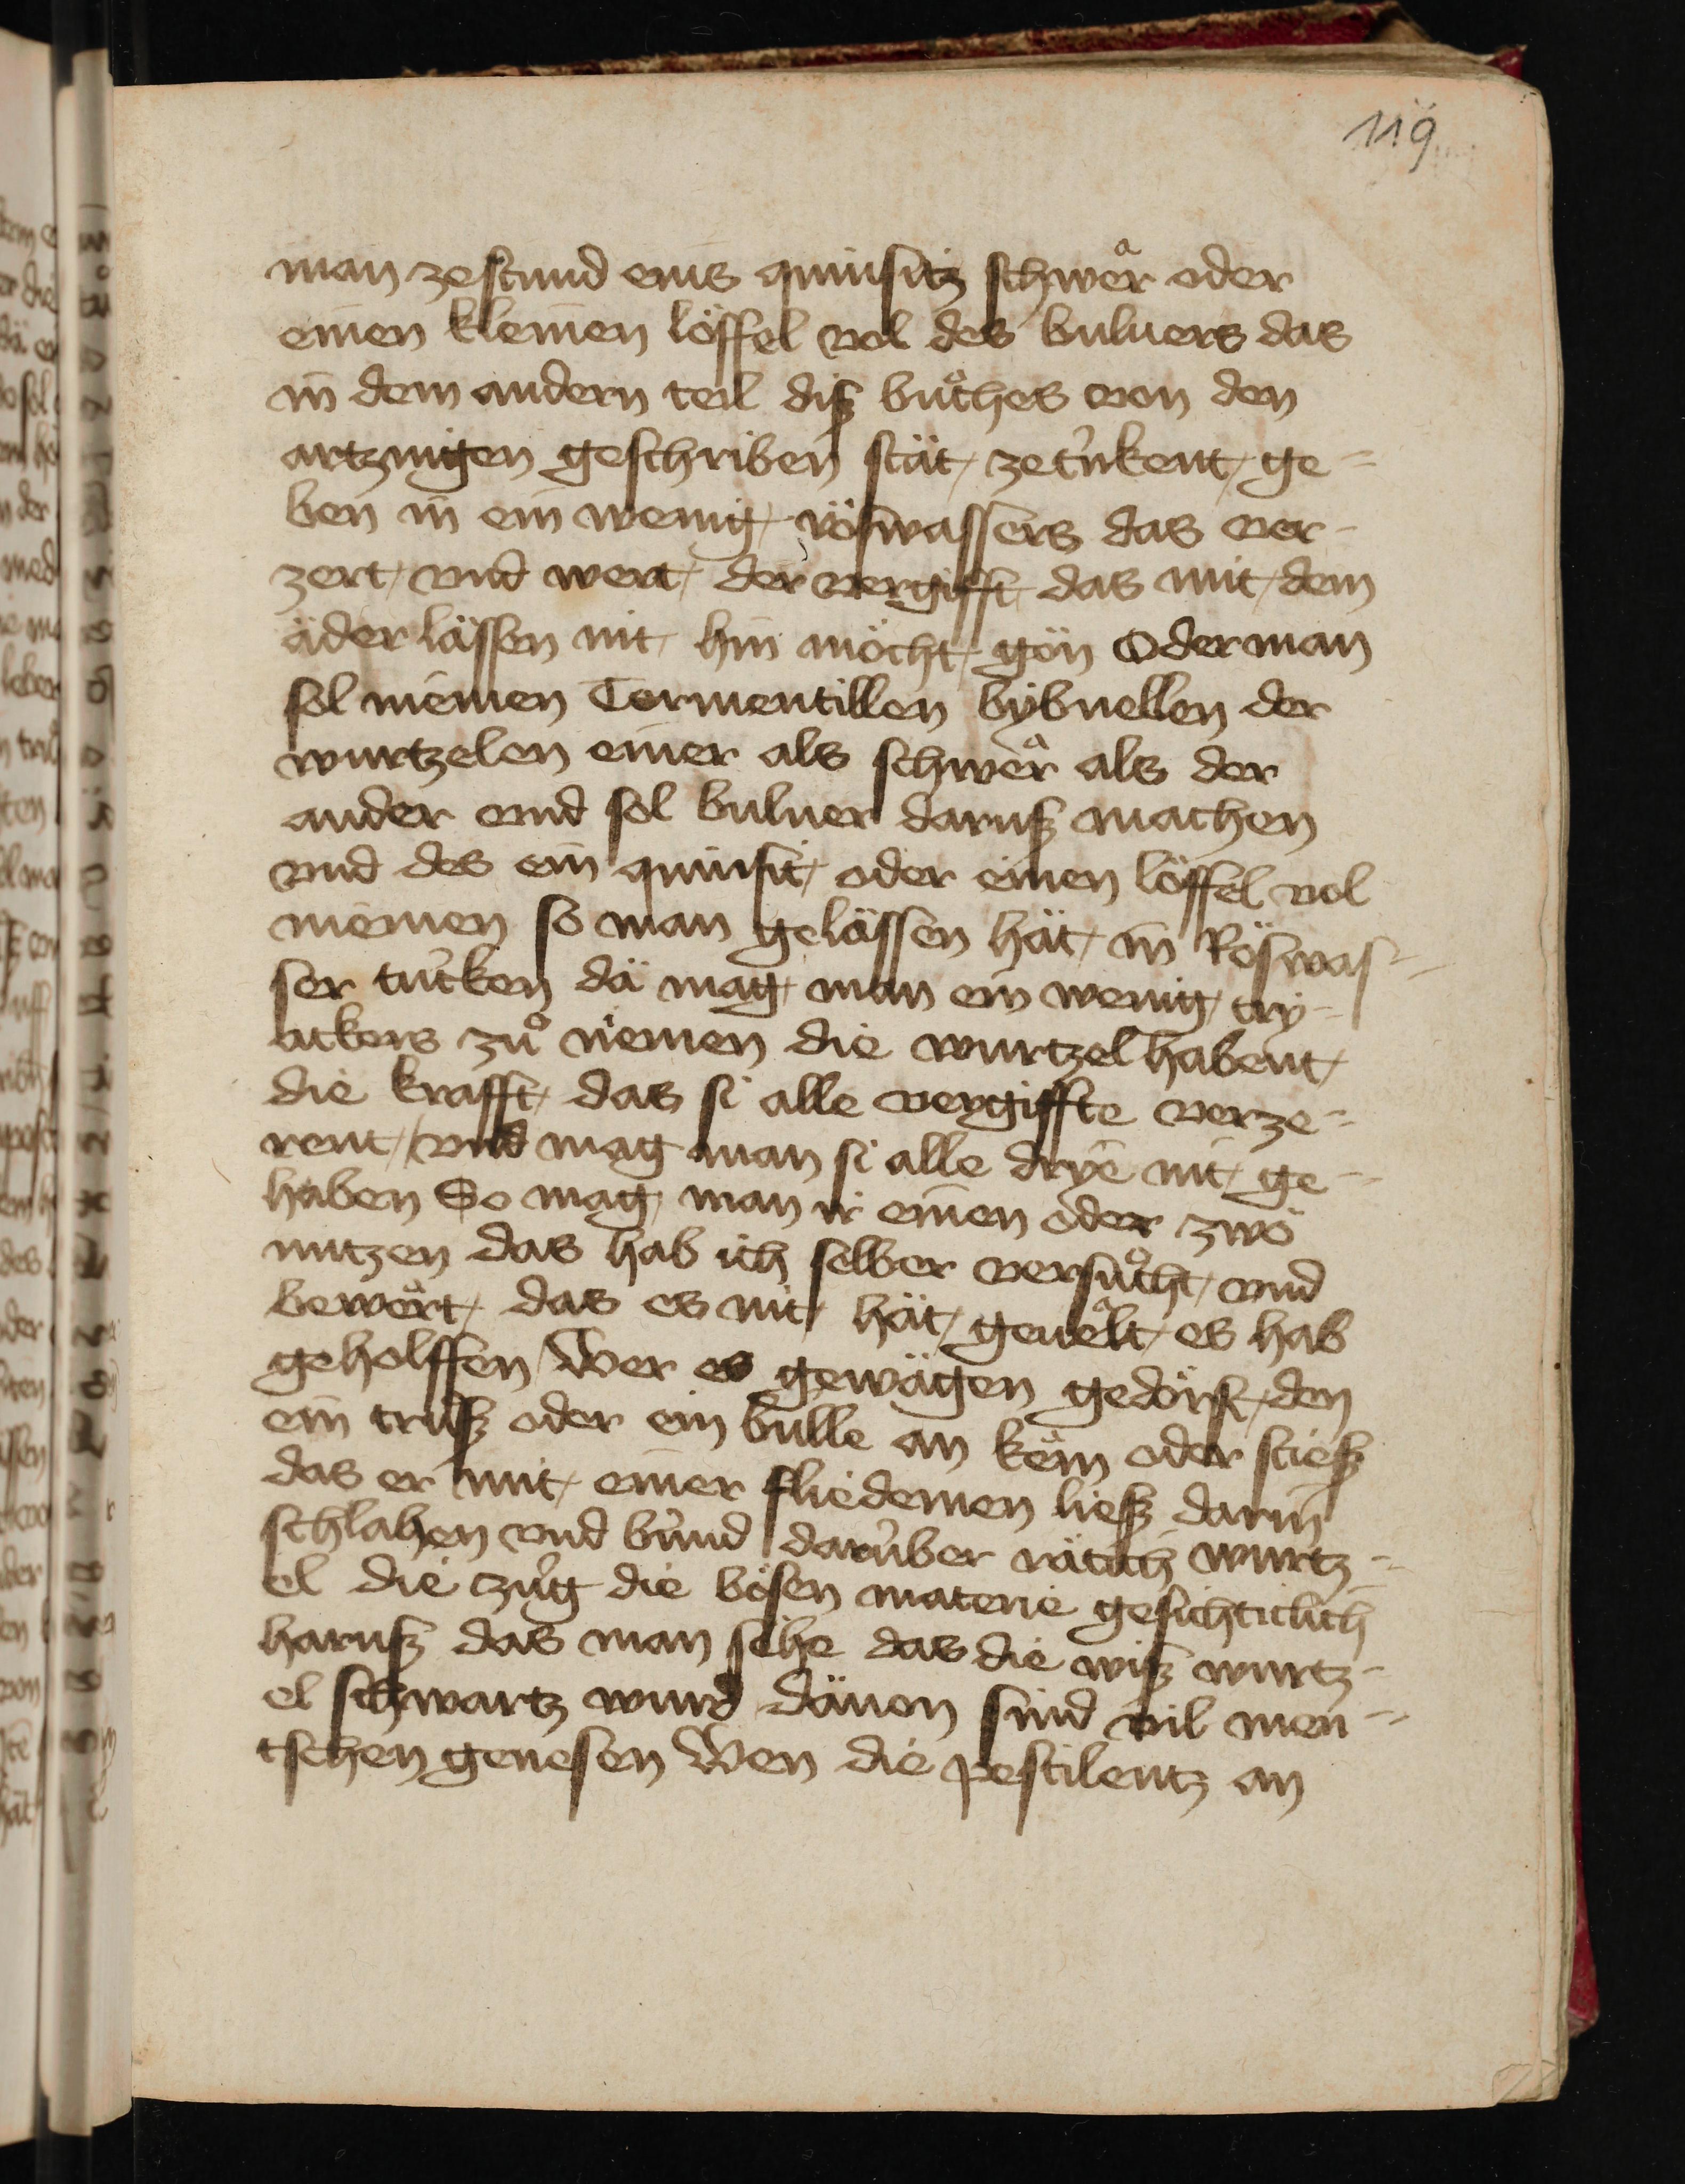 119
man zestund eins quinsitz schwaͤr oder
einen kleinen löffel vol des buluers das
in dem andern teil diß buͦches von den
artznigen geschriben stät zetrükent ge-
ben in ein wenig röswassers das ver-
zert vnd wert der vergifft das mit dem
äderlässen nit hin möcht gön Oder man
sol niemen Tormentillen bybnellen der
wurtzelen einer als schwaͤr als der
ander vnd sol buluer daruß machen
vnd des ein quinsit oder einen löffel vol
niemen so man gelässen hät in Röswas-
ser trücken dä mag man ein wenig try-
ackers zuͦ niemen die wurtzel habent
die krafft das si alle vergiffte verze-
rent vnd mag man si alle drye nit ge-
haben So mag man ir einen oder zwö
nutzen das hab ich selber versuͦcht vnd
bewaͤrt das es nit hät geuaͤlt es hab
geholffen Wer es gewägen gedörst den
ein truͤß oder ein bülle an käm oder stieß
das er mit einer fliedemen ließ darin
schlahen vnd bünd darüber rätich wurtz-
el die zug die bösen materie gesichticlich
haruß das man sehe das die wiß wurtz-
el schwartz wurd däuon sind vil men-
tschen genesen Wen die pestilentz an